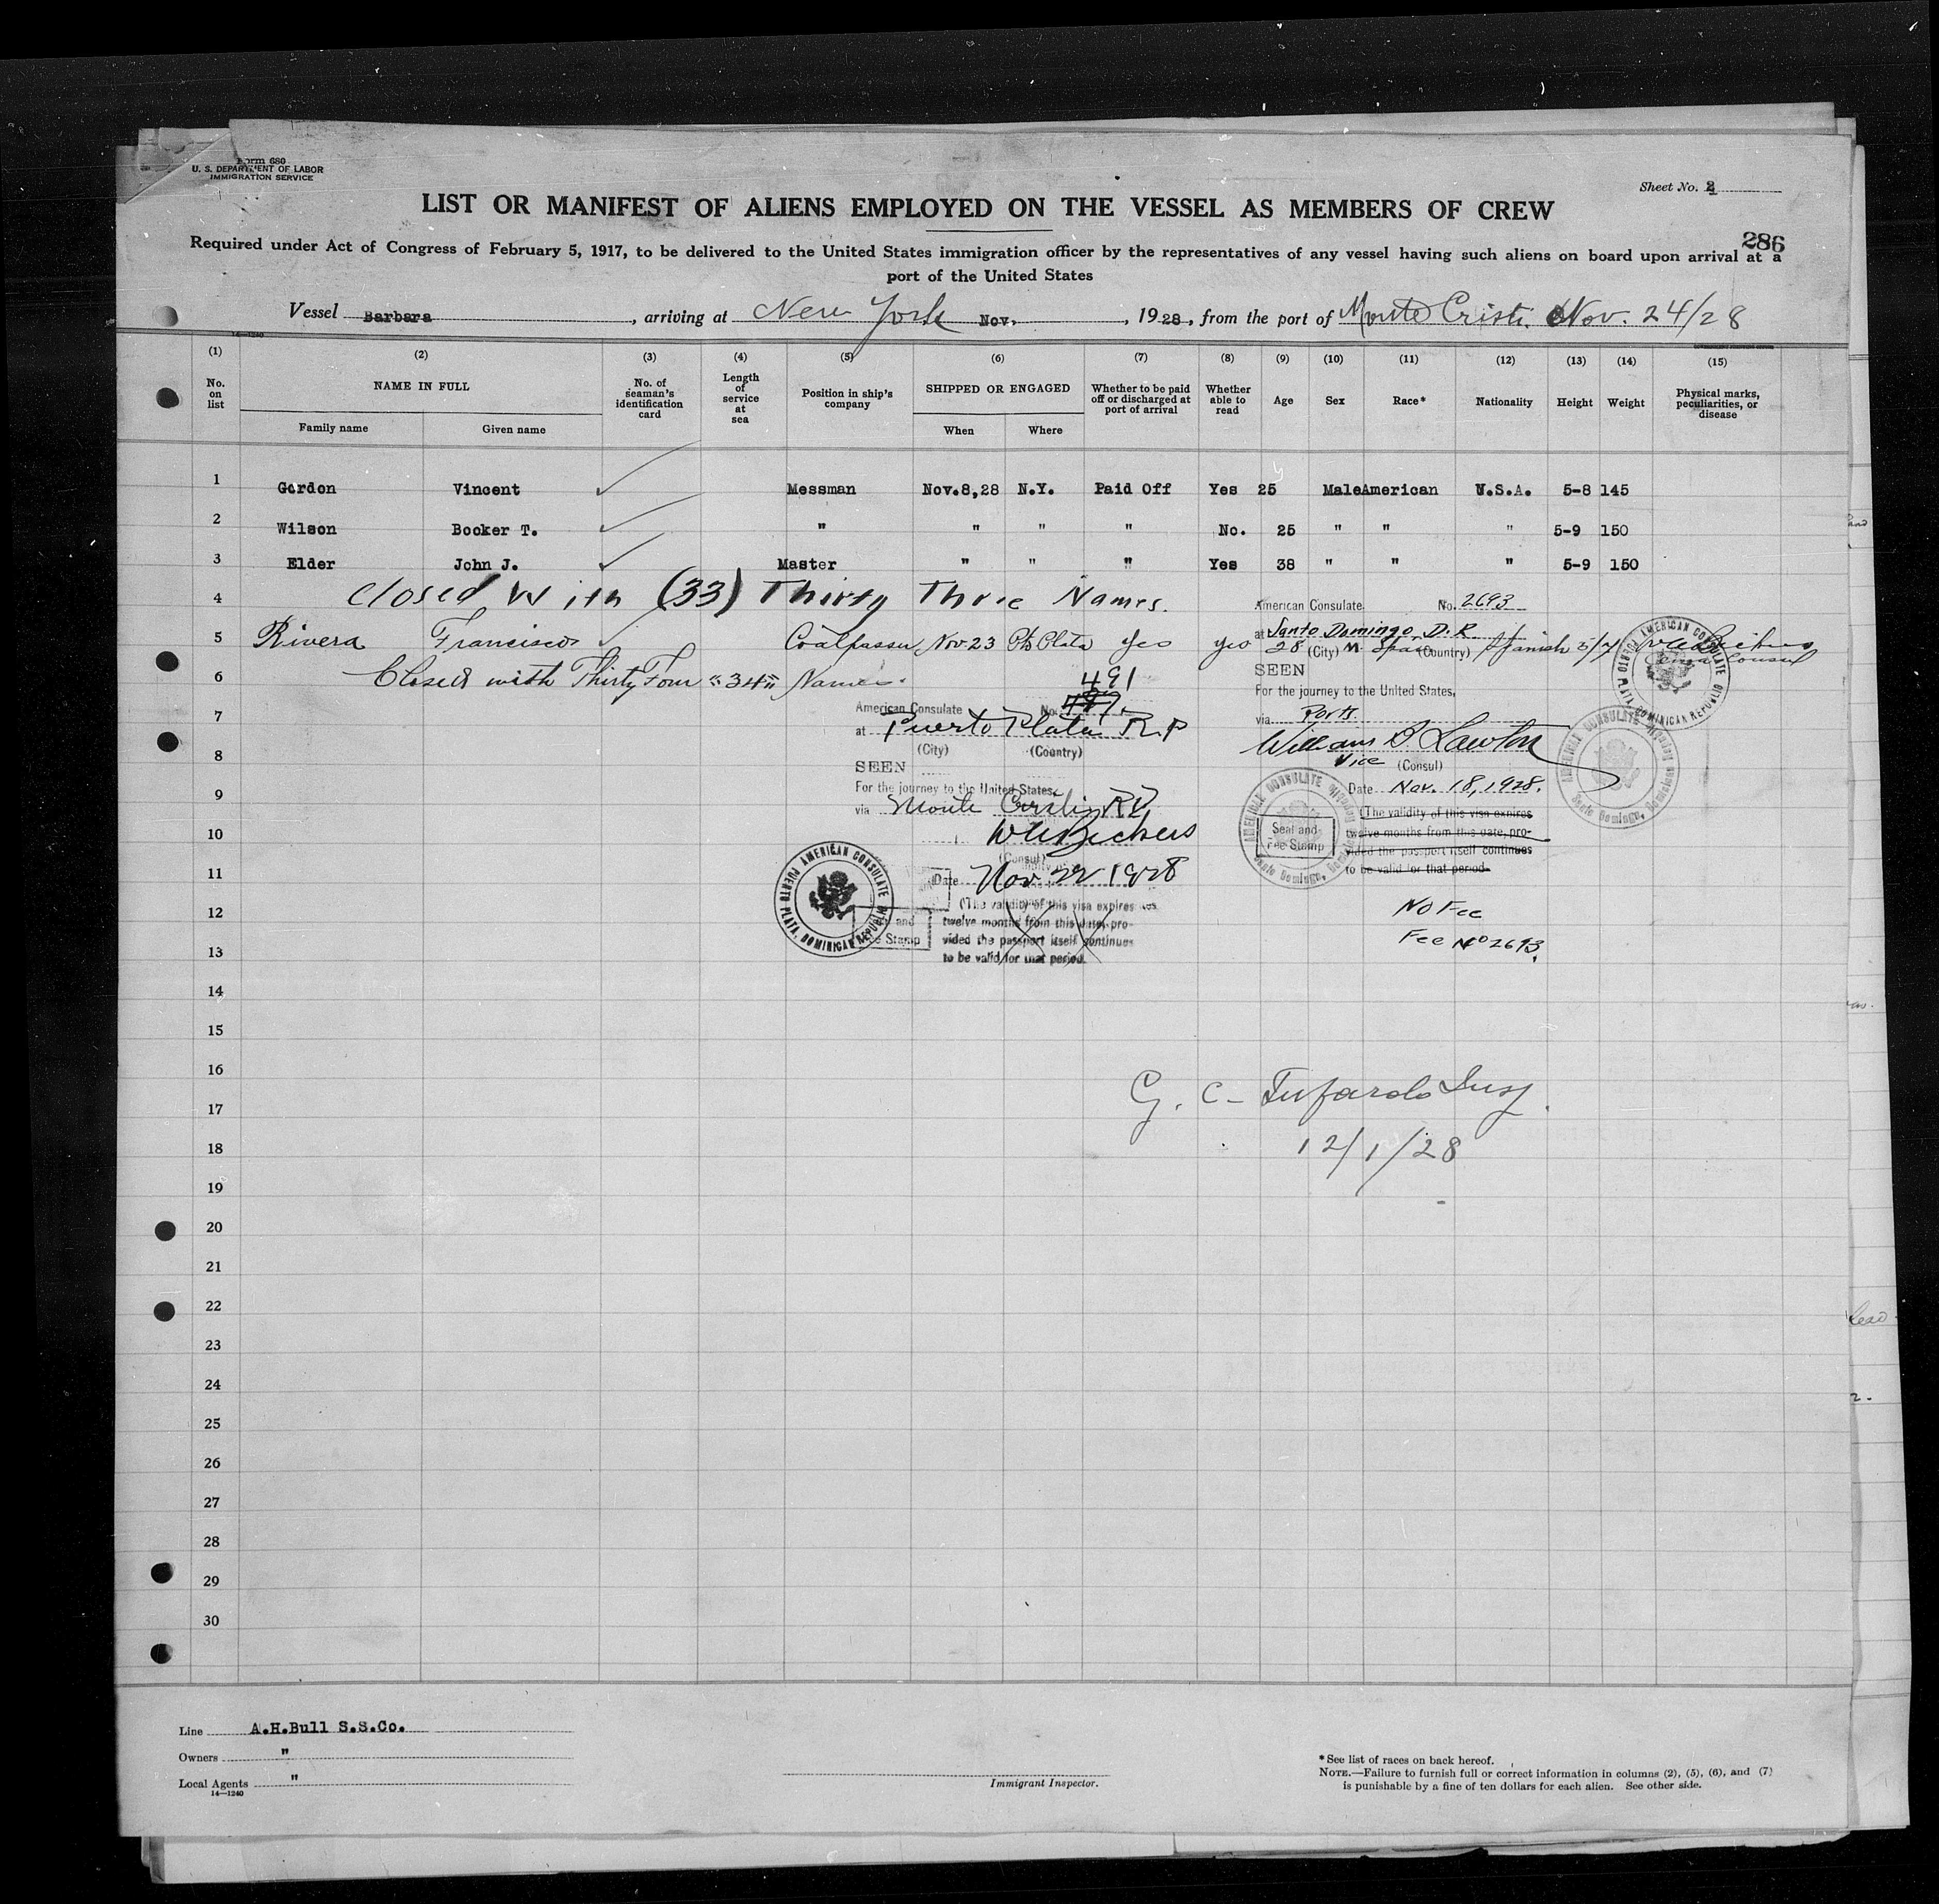 Form 680
U. S. DEPARTMENT OF LABOR
IMMIGRATION SERVICE
Sheet No. 2
LIST OR MANIFEST OF ALIENS EMPLOYED ON THE VESSEL AS MEMBERS OF CREW
286
Required under Act of Congress of February 5, 1917, to be delivered to the United States immigration officer by the representatives of any vessel having such aliens on board upon arrival at a
port of the United States
Vessel Barbara, arriving at New York Nov., 1928, from the port of Monte Cristi. Nov. 24/28
14-1240
(1) (2) (3) (4) (5) (6) (7) (8) (9) (10) (11) (12) (13) (14) (15)
No. on list NAME IN FULL No. of seaman's identification card Length of service at sea Position in ship's company SHIPPED OR ENGAGED Whether to be paid off or discharged at port of arrival Whether able to read Age Sex Race* Nationality Height Weight Physical marks, peculiarities, or disease
Family name Given name When Where
1 Gordon Vincent Messman Nov.8,28 N.Y. Paid Off Yes 25 Male American U.S.A. 5-8 145
2 Wilson Booker T. " " " " No. 25 " " " 5-9 150
3 Elder John J. Master " " " Yes 38 " " " 5-9 150
4 Closed With (33) Thirty Three Names.
American Consulate No. 2693
at Santo Domingo D.R.
5 Rivera Francisco Coalpasser Nov 23 Pto Plata yes yes 28 M. Spanish 5/7
(City) (Country)
6 Closed with Thirty Four "34" Names.
SEEN
For the journey to the United States,
via Ports
William B. Lawton
Vice (Consul)
Date Nov. 18, 1928.
(The validity of this visa expires
twelve months from this date, pro-
vided the passport itself continues
to be valid for that period.
Seal and
Fee Stamp
No Fee
Fee No 2693.
AMERICAN CONSULATE
PUERTO PLATA, DOMINICAN REPUBLIC
AMERICAN CONSULATE
Santo Domingo, Dominican Republic
491
7 American Consulate No.
at Puerto Plata R.D.
(City) (Country)
8 SEEN
For the journey to the United States,
9 via Monte Cristi R.D.
10 W A Bickers
(Consul)
11 Date Nov. 22 1928
12 (The validity of this visa expires
twelve months from this date, pro-
vided the passport itself continues
13 to be valid for that period.
AMERICAN CONSULATE
PUERTO PLATA, DOMINICAN REPUBLIC
14
15
16 G. C. Tufarolo Insp.
17
18 12/1/28
19
20
21
22
23
24
25
26
27
28
29
30
Line A.H.Bull S.S.Co.
Owners "
Local Agents "
14-1240
Immigrant Inspector.
*See list of races on back hereof.
NOTE.—Failure to furnish full or correct information in columns (2), (5), (6), and (7)
is punishable by a fine of ten dollars for each alien. See other side.